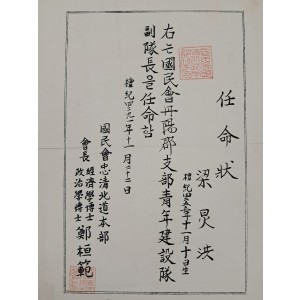 任命狀
梁炅洪
檀紀四二年十一月十日生
右는國民會丹陽郡支部青年建設隊
副隊長을任命함
檀紀四二九一年十一月二十二日
國民會忠清北道本部
會長 經濟學博士 政治學博士 鄭桓範